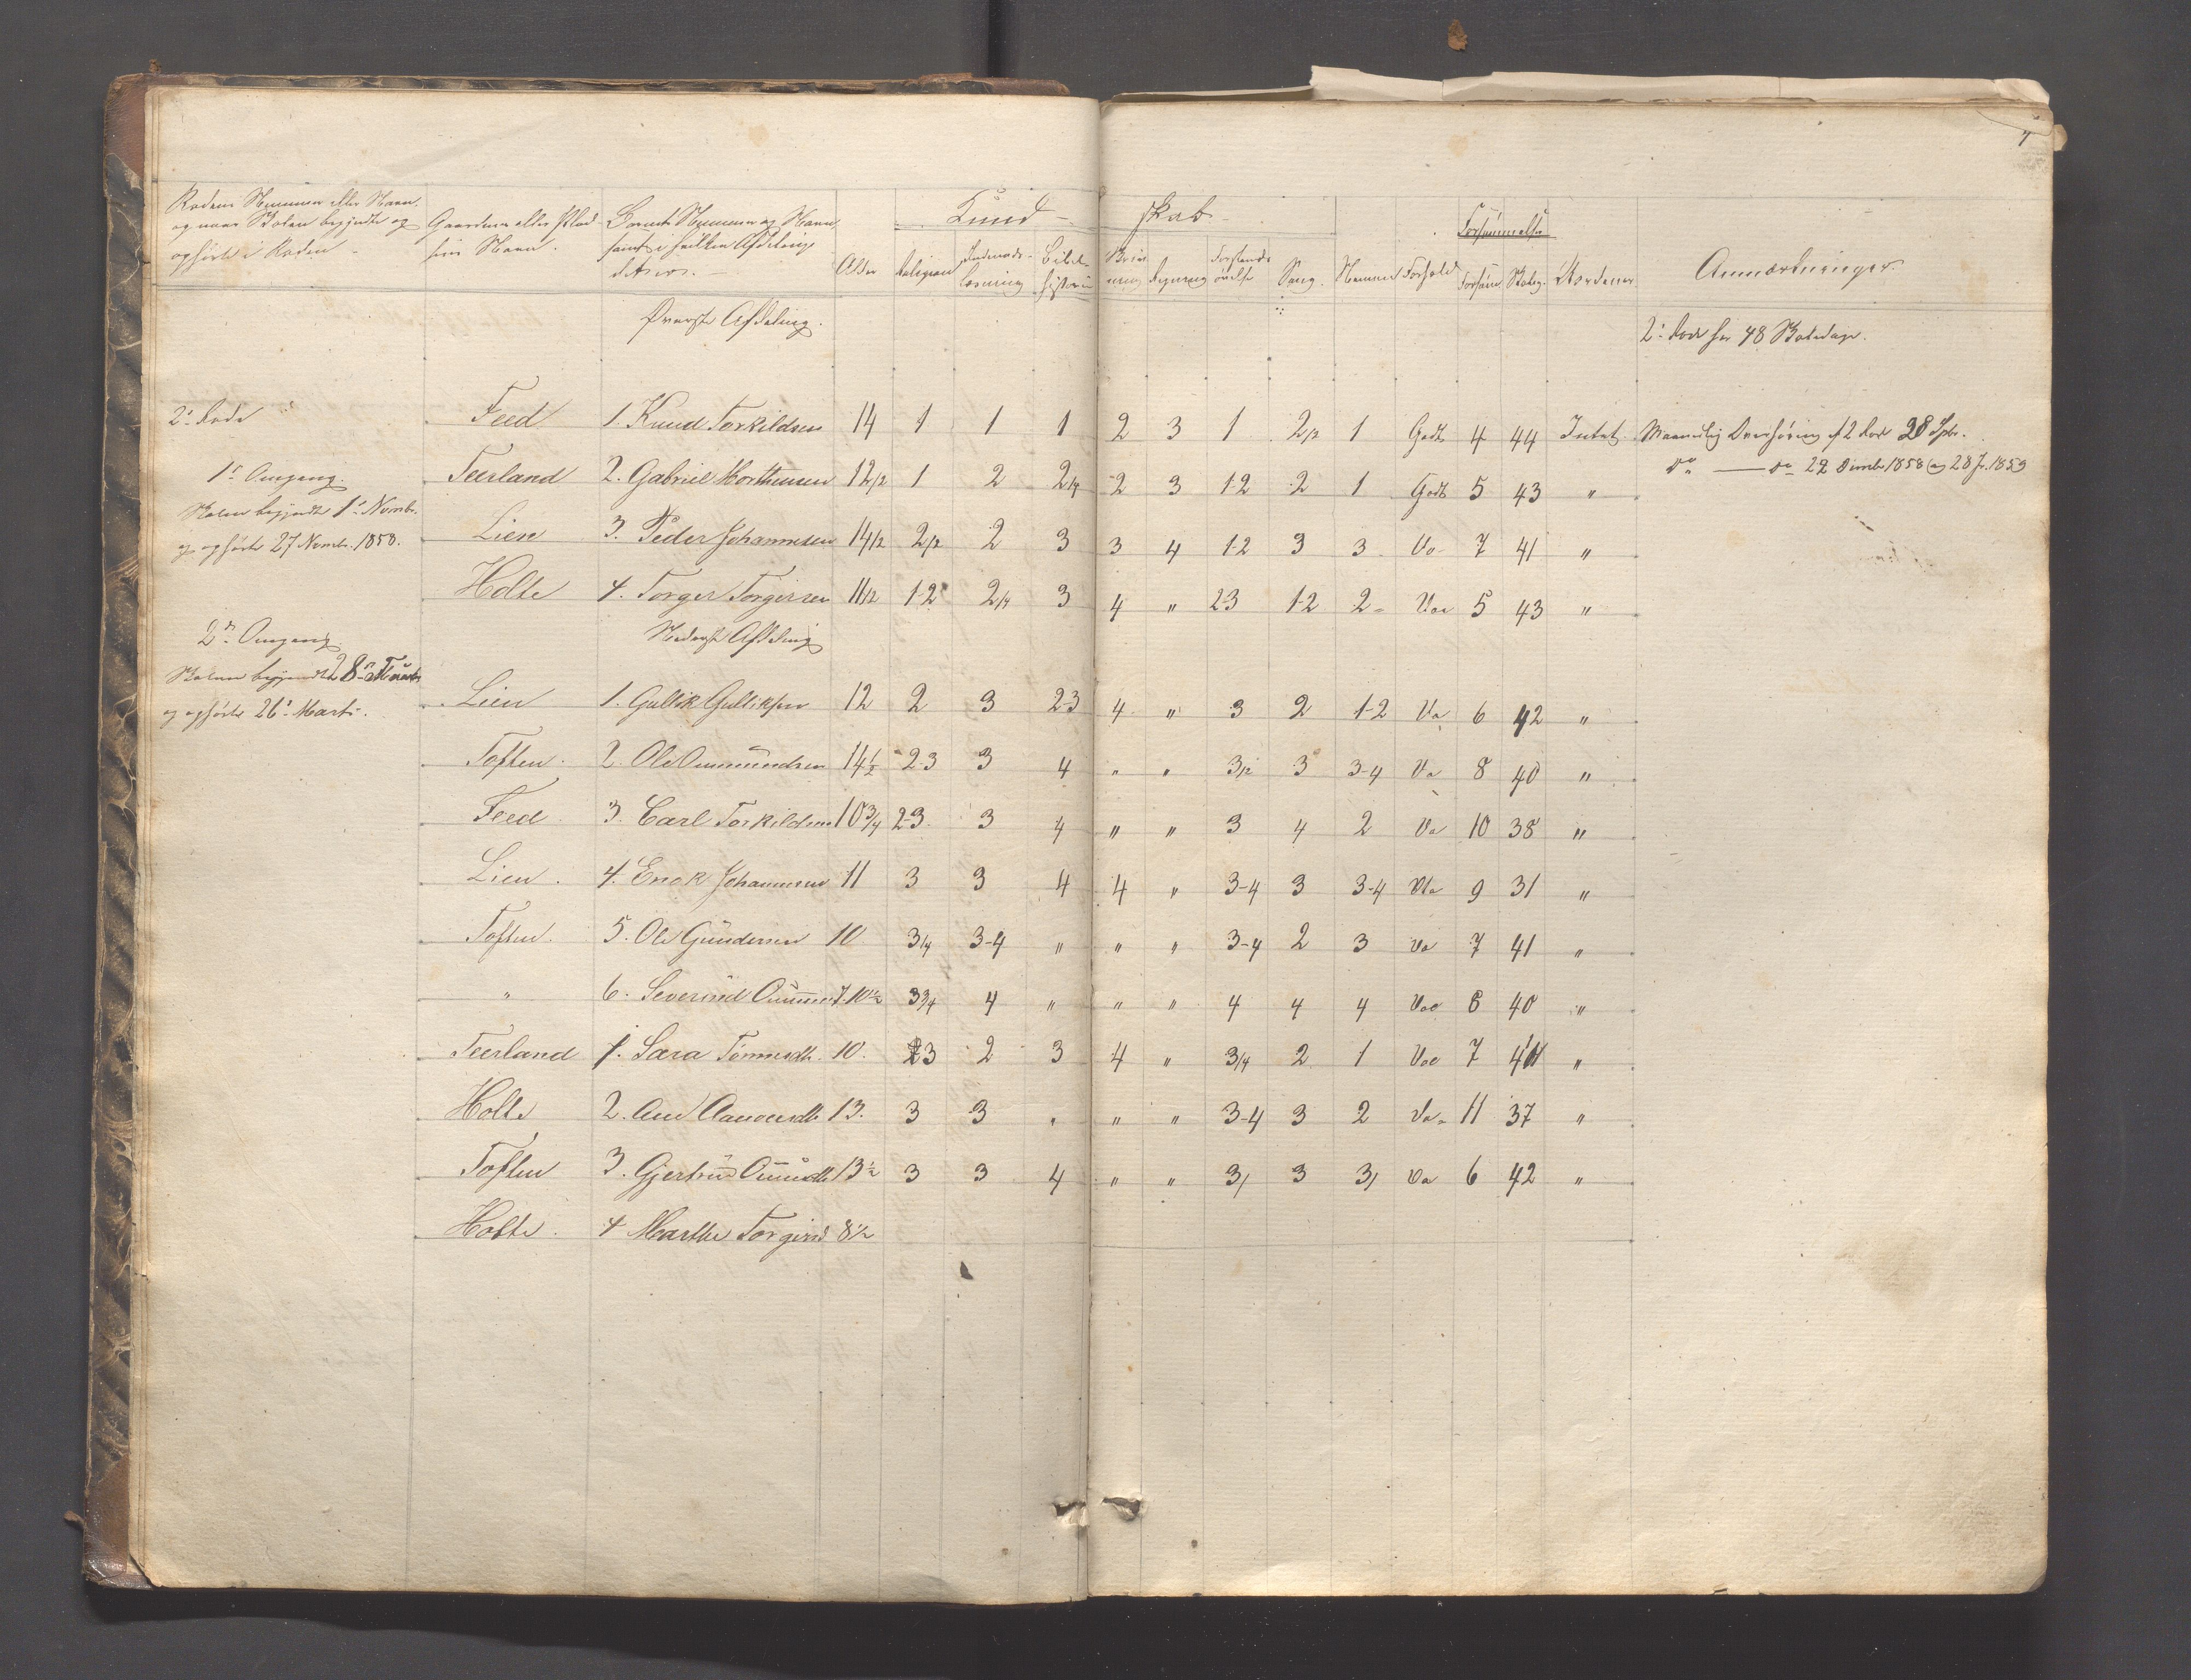 4
Rodens Nummer eller Navn,
og naar Skolen begyndte og
ophørte i Roden
Gaardens eller Plad-
sens Navn.
Barnets Nummer og Navn,
samt i hvilken Afdeling
det er.
Alder
Kund- skab
Religion
Indenads-
læsning
Bibel-
historie
Skriv-
ning
Regning
Forstands-
øvelse
Sang.
Nemme
Forhold
Forsømmelse
Forsøm.
Skoleg.
Uordener
Anmærkninger.
Øverste Afdeling.
2: Rode har 48 Skoledage.
2: Rode
Feed 1. Knud Torkildsen 14 1 1 1 2 3 1 2/2 1 Godt 4 44 Intet. Maanedlig Overhøring i 2 Rode 28 Spbr.
1ste Omgang.
Teesland 2. Gabriel Morthensen 12/2 1 2 2/4 2 3 1-2 2 1 Godt 5 43 " Do — Do 29 Decmbr 1858 og 28 J. 1859
Skolen begyndte 1ste Novmbr.
og ophørte 27 Novmbr. 1858.
Lien 3. Peder Johannesen 14/2 2/2 2 3 3 4 1-2 3 3 Do 7 41 "
Holte 4. Torger Torgersen 11/2 1-2 2/4 3 4 " 2-3 1-2 2 Do 5 43 "
2den Omgang
Nederste Afdeling
Skolen begyndte 28de
og ophørte 26: Marts.
Lien 1. Gullik Gulliksen 12 2 3 2-3 4 " 3 2 1-2 Do 6 42 "
Toften. 2. Ole Ommundsen 14½ 2-3 3 4 " " 3/2 3 3-4 Do 8 40 "
Feed. 3. Carl Torkildsen 10¾ 2-3 3 4 " " 3 4 2 Do 10 38 "
Lien. 4. Enok Johannesen 11 3 3 4 4 " 3-4 3 3-4 Do 9 31 "
Toften. 5. Ole Gundersen 10 3/4 3-4 " " " 3-4 2 3 Do 7 41 "
" 6. Severind 10½ 3¾ 4 " " " 4 4 4 Do 8 40 "
Teesland 1. Sara Tønnesdt. 10. 3 2 3 4 " 3/4 2 1 Do 7 41 "
Holte 2. Ane Aanensdt. 13. 3 3 " " " 3-4 3 2 Do 11 37 "
Toften 3. Gjertrud Omundt 13½ 3 3 4 " " 3/ 3 3/ Do 6 42 "
Holte. 4 Marthe Torgersd 8½